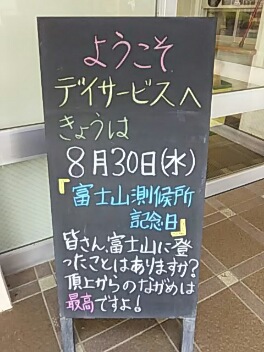 ようこそ
デイサービスへ
きょうは
8月30日(水)
『富士山測候所
記念日』
皆さん、富士山に登
ったことはありますか?
頂上からのながめは
最高ですよ!